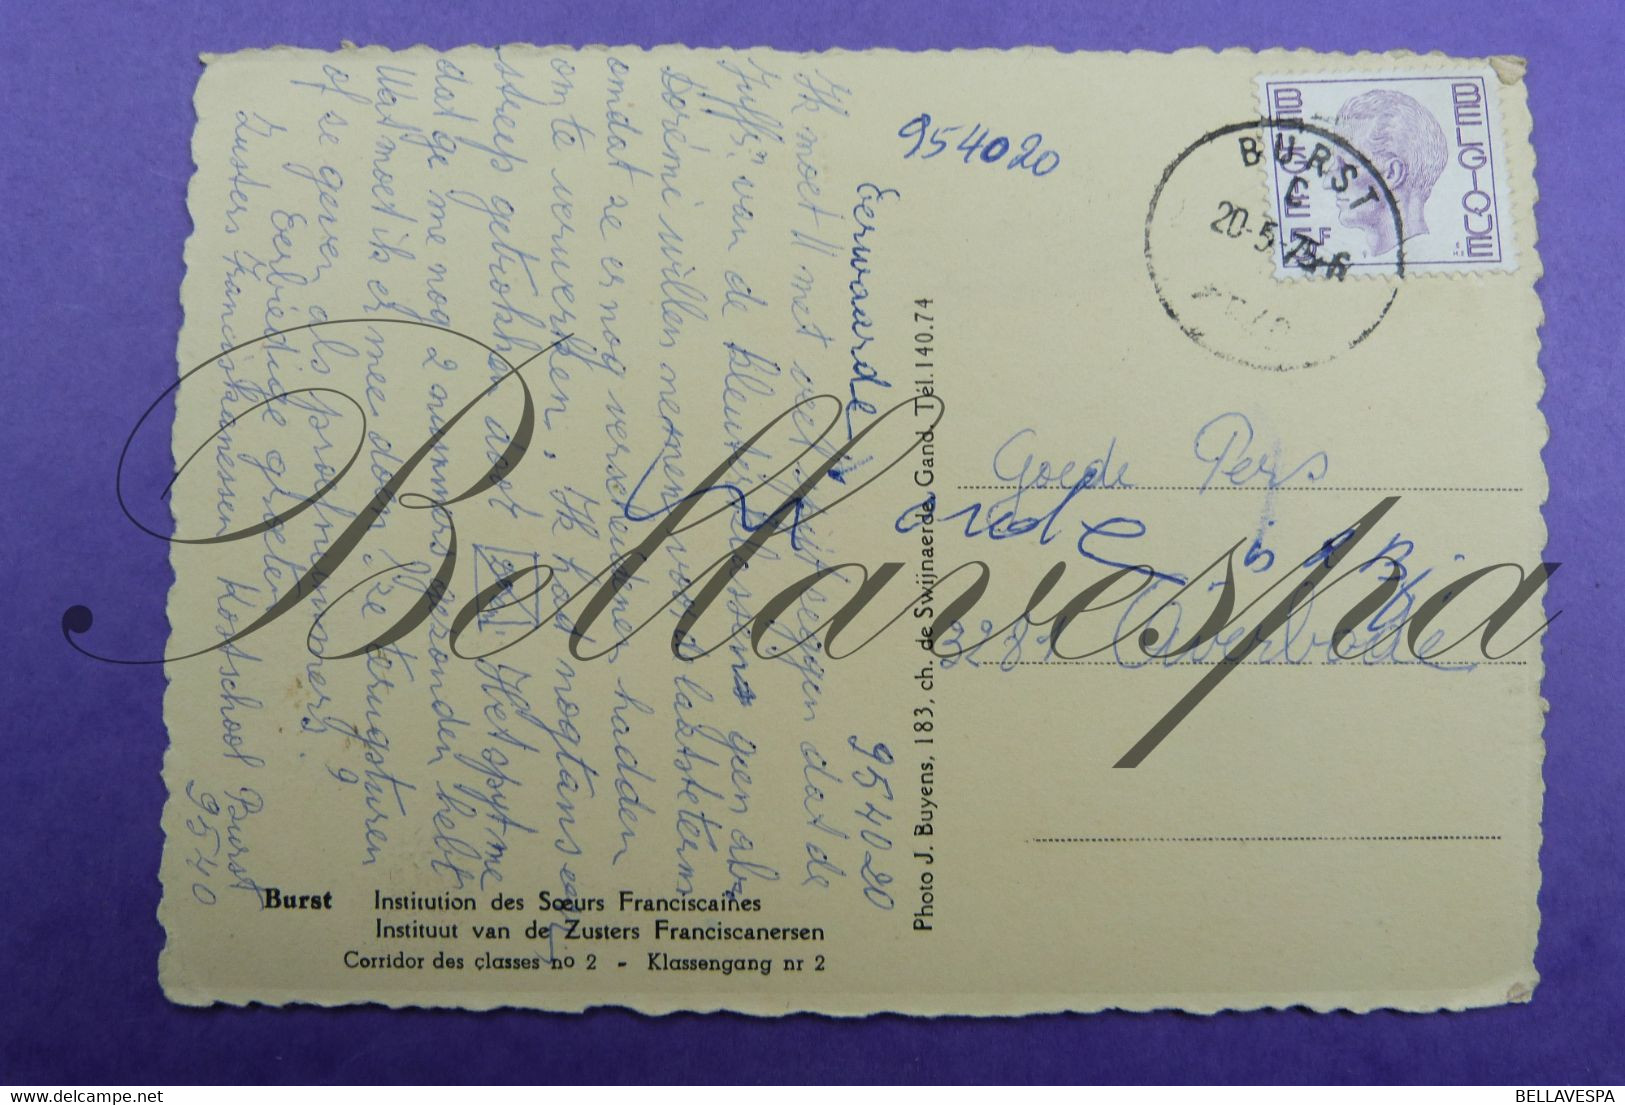 954020
BELGIQUE
BELGIE
F
BURST
20-5-75-6
Goede Pers
3281 Averbode
Eerwaarde
954020
Ik moet U met veel spijt zeggen dat de
Juffr. van de kleuterklassen geen ab.
Dorémi willen nemen voor de laatste term
omdat ze er nog verscheidenen hadden
om te verwerken. Ik had nogtans een
streep getrokken door Het spijt me
dat ge me nog 2 nummers gezonden hebt
Wat moet ik er mee doen? Ze terugsturen
of ze geven als proefnummers?
Eerbiedige groeten
Zusters Franciskanessen Kostschool Burst
9540
Photo J. Buyens, 183, ch. de Swijnaerde, Gand. Tél. 140.74
Burst Institution des Sœurs Franciscaines
Instituut van de Zusters Franciscanersen
Corridor des classes no 2 - Klassengang nr 2
Bellavespa
BELLAVESPA